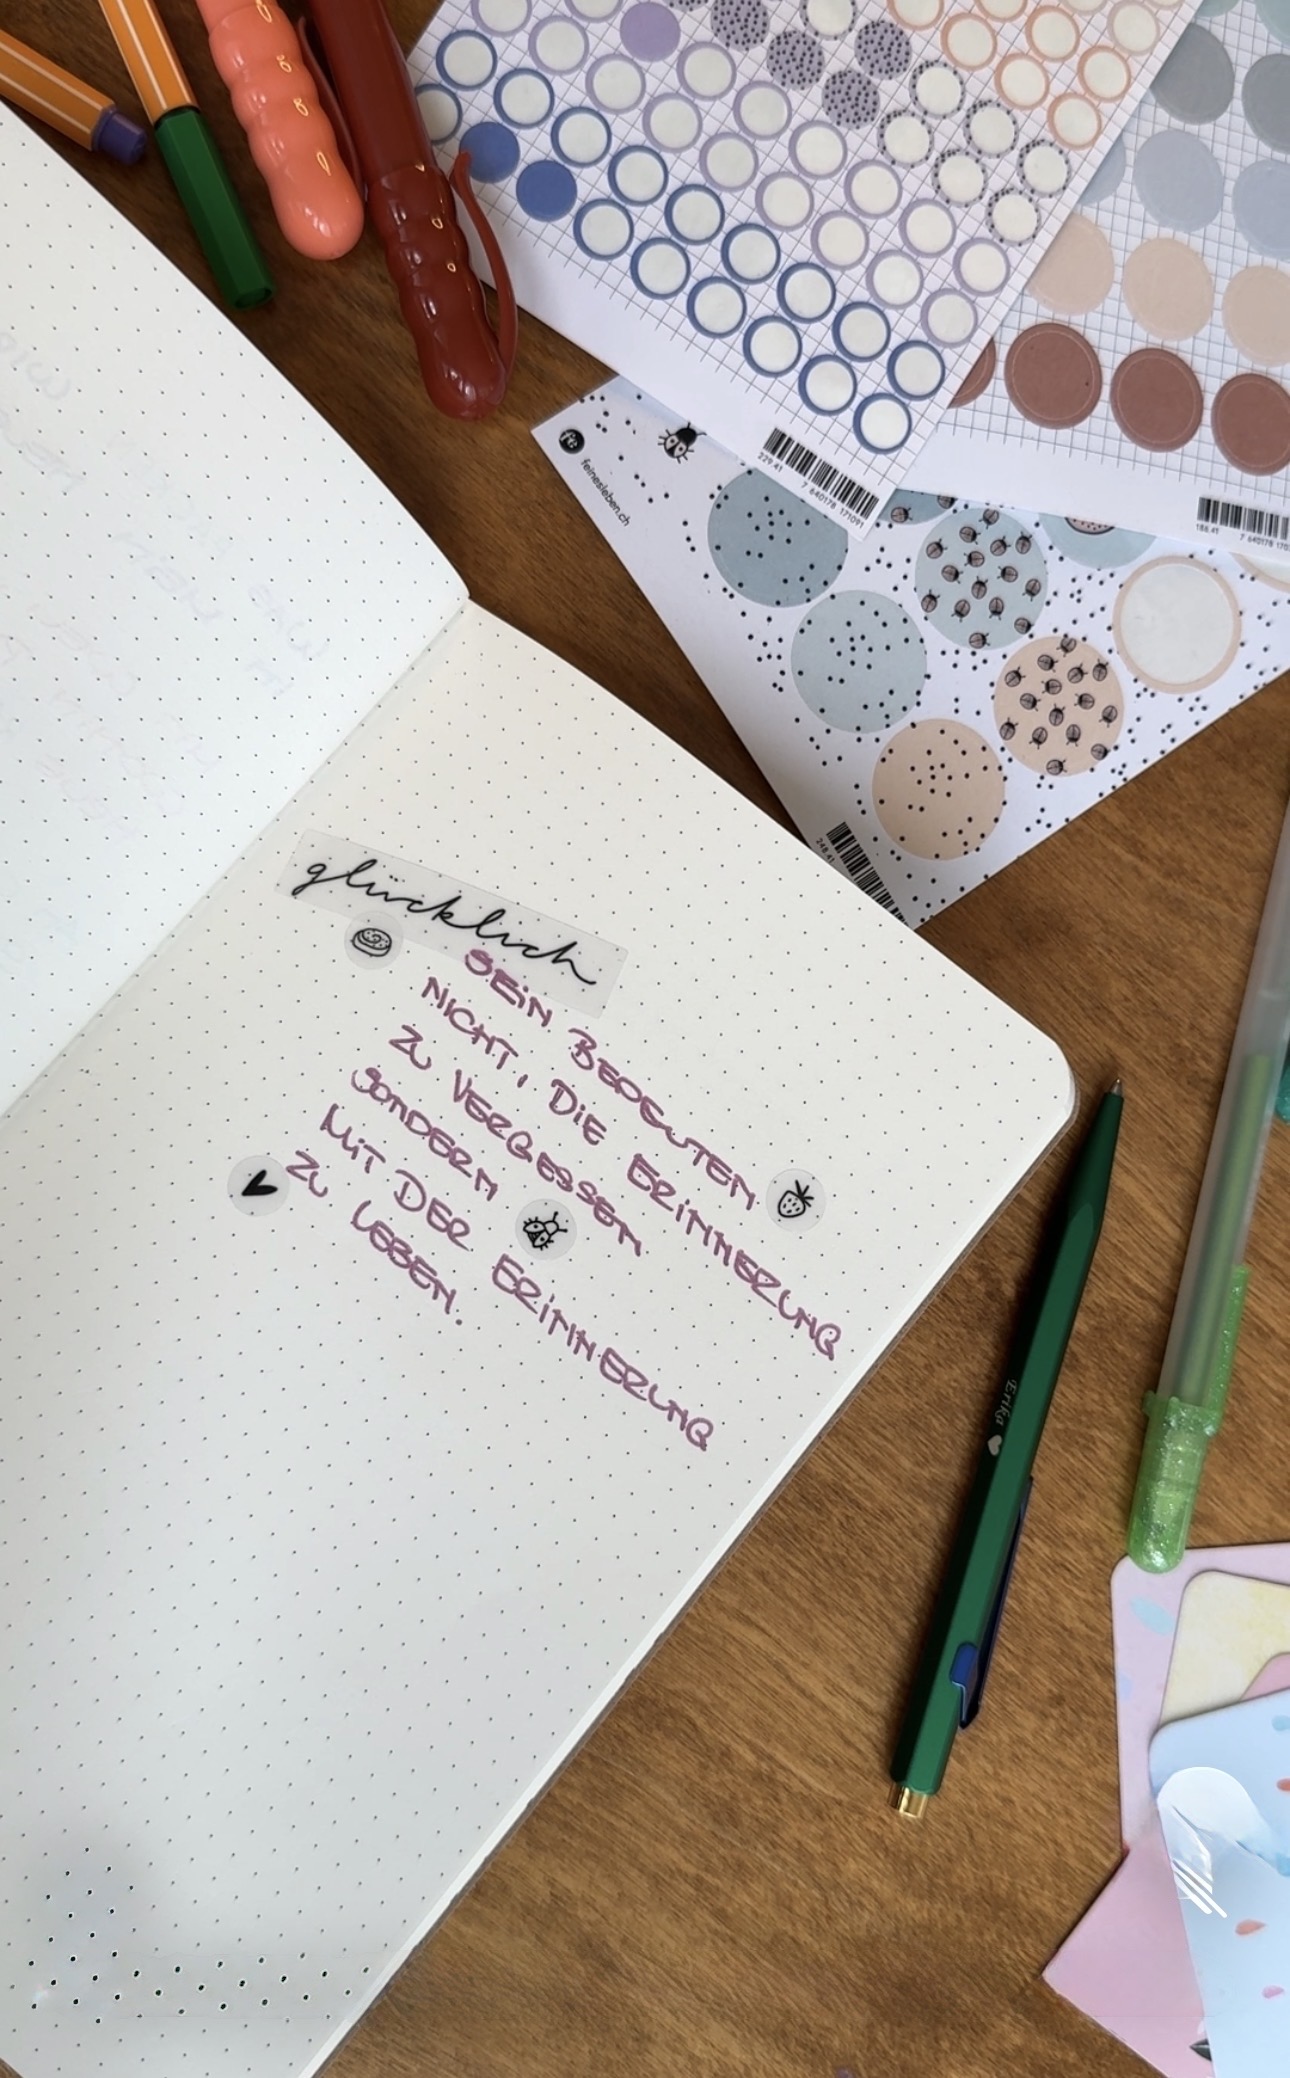 feinesleben.ch
229.41
7 640178 171091
188.41
248.41
glücklich
SEIN BEDEUTEN
NICHT, DIE ERINNERUNG
ZU VERGESSEN
SONDERN
MIT DER ERINNERUNG
ZU LEBEN.
Erika